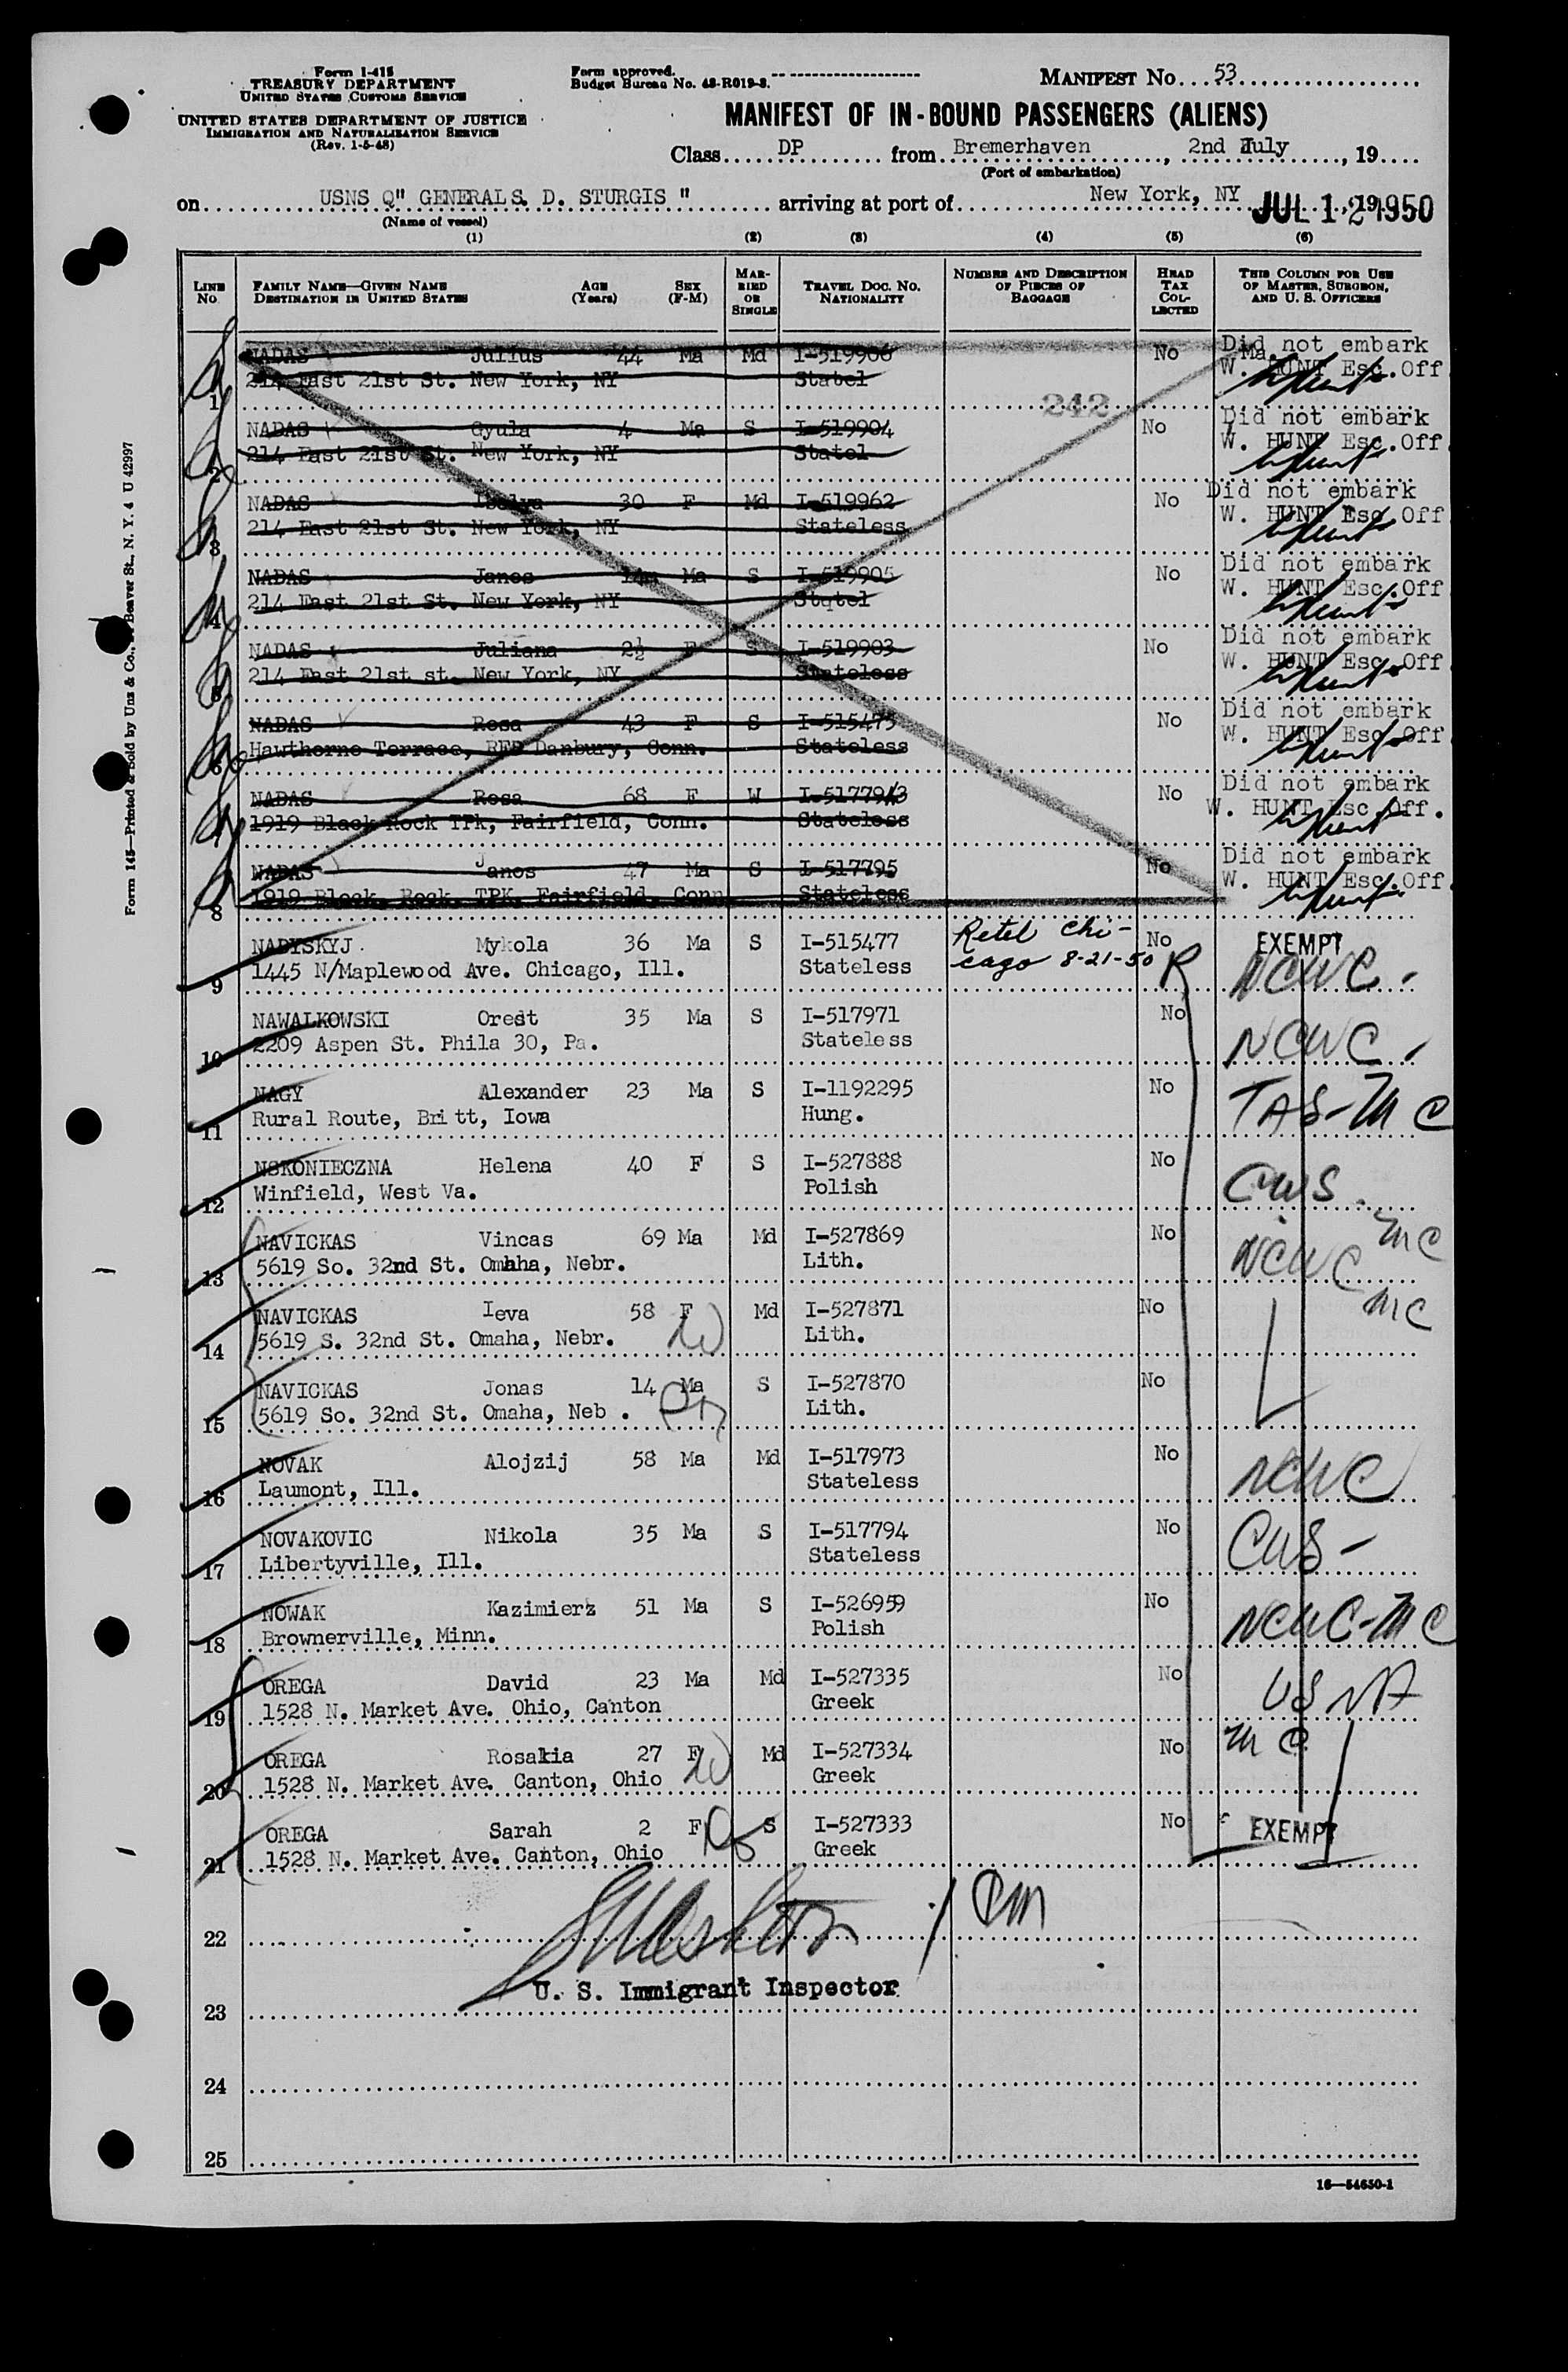 Form I-415
TREASURY DEPARTMENT
UNITED STATES CUSTOMS SERVICE
UNITED STATES DEPARTMENT OF JUSTICE
IMMIGRATION AND NATURALIZATION SERVICE
(Rev. 1-5-48)
Form approved.
Budget Bureau No. 43-R019-3.
MANIFEST No. 53
MANIFEST OF IN-BOUND PASSENGERS (ALIENS)
Class DP from Bremerhaven, 2nd July, 19
(Port of embarkation)
on USNS Q" GENERAL S. D. STURGIS " arriving at port of New York, NY JUL 12 1950, 19
(Name of vessel)
(1) (2) (3) (4) (5) (6)
LINE No. FAMILY NAME—GIVEN NAME DESTINATION IN UNITED STATES AGE (Years) SEX (F-M) MARRIED OR SINGLE TRAVEL DOC. NO. NATIONALITY NUMBER AND DESCRIPTION OF PIECES OF BAGGAGE HEAD TAX COLLECTED THIS COLUMN FOR USE OF MASTER, SURGEON, AND U. S. OFFICERS
NADAS Julius 44 Ma Md I-519906 No Did not embark
1 214 East 21st St. New York, NY Statel W. HUNT Esc. Off
242
NADAS Gyula 4 Ma S I-519904 No Did not embark
2 214 East 21st St. New York, NY Statel W. HUNT Esc. Off
NADAS 30 F Md I-519962 No Did not embark
3 214 East 21st St. New York, NY Stateless W. HUNT Esc. Off
NADAS Janos Ma S I-519905 No Did not embark
4 214 East 21st St. New York, NY Statel W. HUNT Esc. Off
NADAS Juliana 2½ F S I-519903 No Did not embark
5 214 East 21st st. New York, NY Stateless W. HUNT Esc. Off
NADAS Rosa 43 F S I-515475 No Did not embark
6 Hawthorne Terrace, RFD Danbury, Conn. Stateless W. HUNT Esc. Off
NADAS Rosa 68 F W No Did not embark
7 1919 Black Rock TPk, Fairfield, Conn. Stateless W. HUNT Esc. Off.
NADAS Janos 47 Ma S I-517795 No Did not embark
8 1919 Black Rock TPK, Fairfield, Conn Stateless W. HUNT Esc. Off
NABYSKYJ Mykola 36 Ma S I-515477 Retel Chi- No EXEMPT
9 1445 N/Maplewood Ave. Chicago, Ill. Stateless cago 8-21-50 R NCWC -
NAWALKOWSKI Orest 35 Ma S I-517971 No
10 2209 Aspen St. Phila 30, Pa. Stateless NCWC -
NAGY Alexander 23 Ma S I-1192295 No TAS-MC
11 Rural Route, Britt, Iowa Hung.
NSKONIECZNA Helena 40 F S I-527888 No CWS
12 Winfield, West Va. Polish
NAVICKAS Vincas 69 Ma Md I-527869 No NCWC MC
13 5619 So. 32nd St. Omaha, Nebr. Lith.
NAVICKAS Ieva 58 F W Md I-527871 No MC
14 5619 S. 32nd St. Omaha, Nebr. Lith.
NAVICKAS Jonas 14 Ma S I-527870 No
15 5619 So. 32nd St. Omaha, Neb . Lith.
NOVAK Alojzij 58 Ma Md I-517973 No NCWC
16 Laumont, Ill. Stateless
NOVAKOVIC Nikola 35 Ma S I-517794 No CWS -
17 Libertyville, Ill. Stateless
NOWAK Kazimierz 51 Ma S I-526959 No NCWC-MC
18 Brownerville, Minn. Polish
OREGA David 23 Ma Md I-527335 No USNA
19 1528 N. Market Ave. Ohio, Canton Greek
OREGA Rosakia 27 F W Md I-527334 No MC
20 1528 N. Market Ave. Canton, Ohio Greek
OREGA Sarah 2 F S I-527333 No EXEMPT
21 1528 N. Market Ave. Canton, Ohio Greek
22
U. S. Immigrant Inspector
23
24
25
16—54650-1